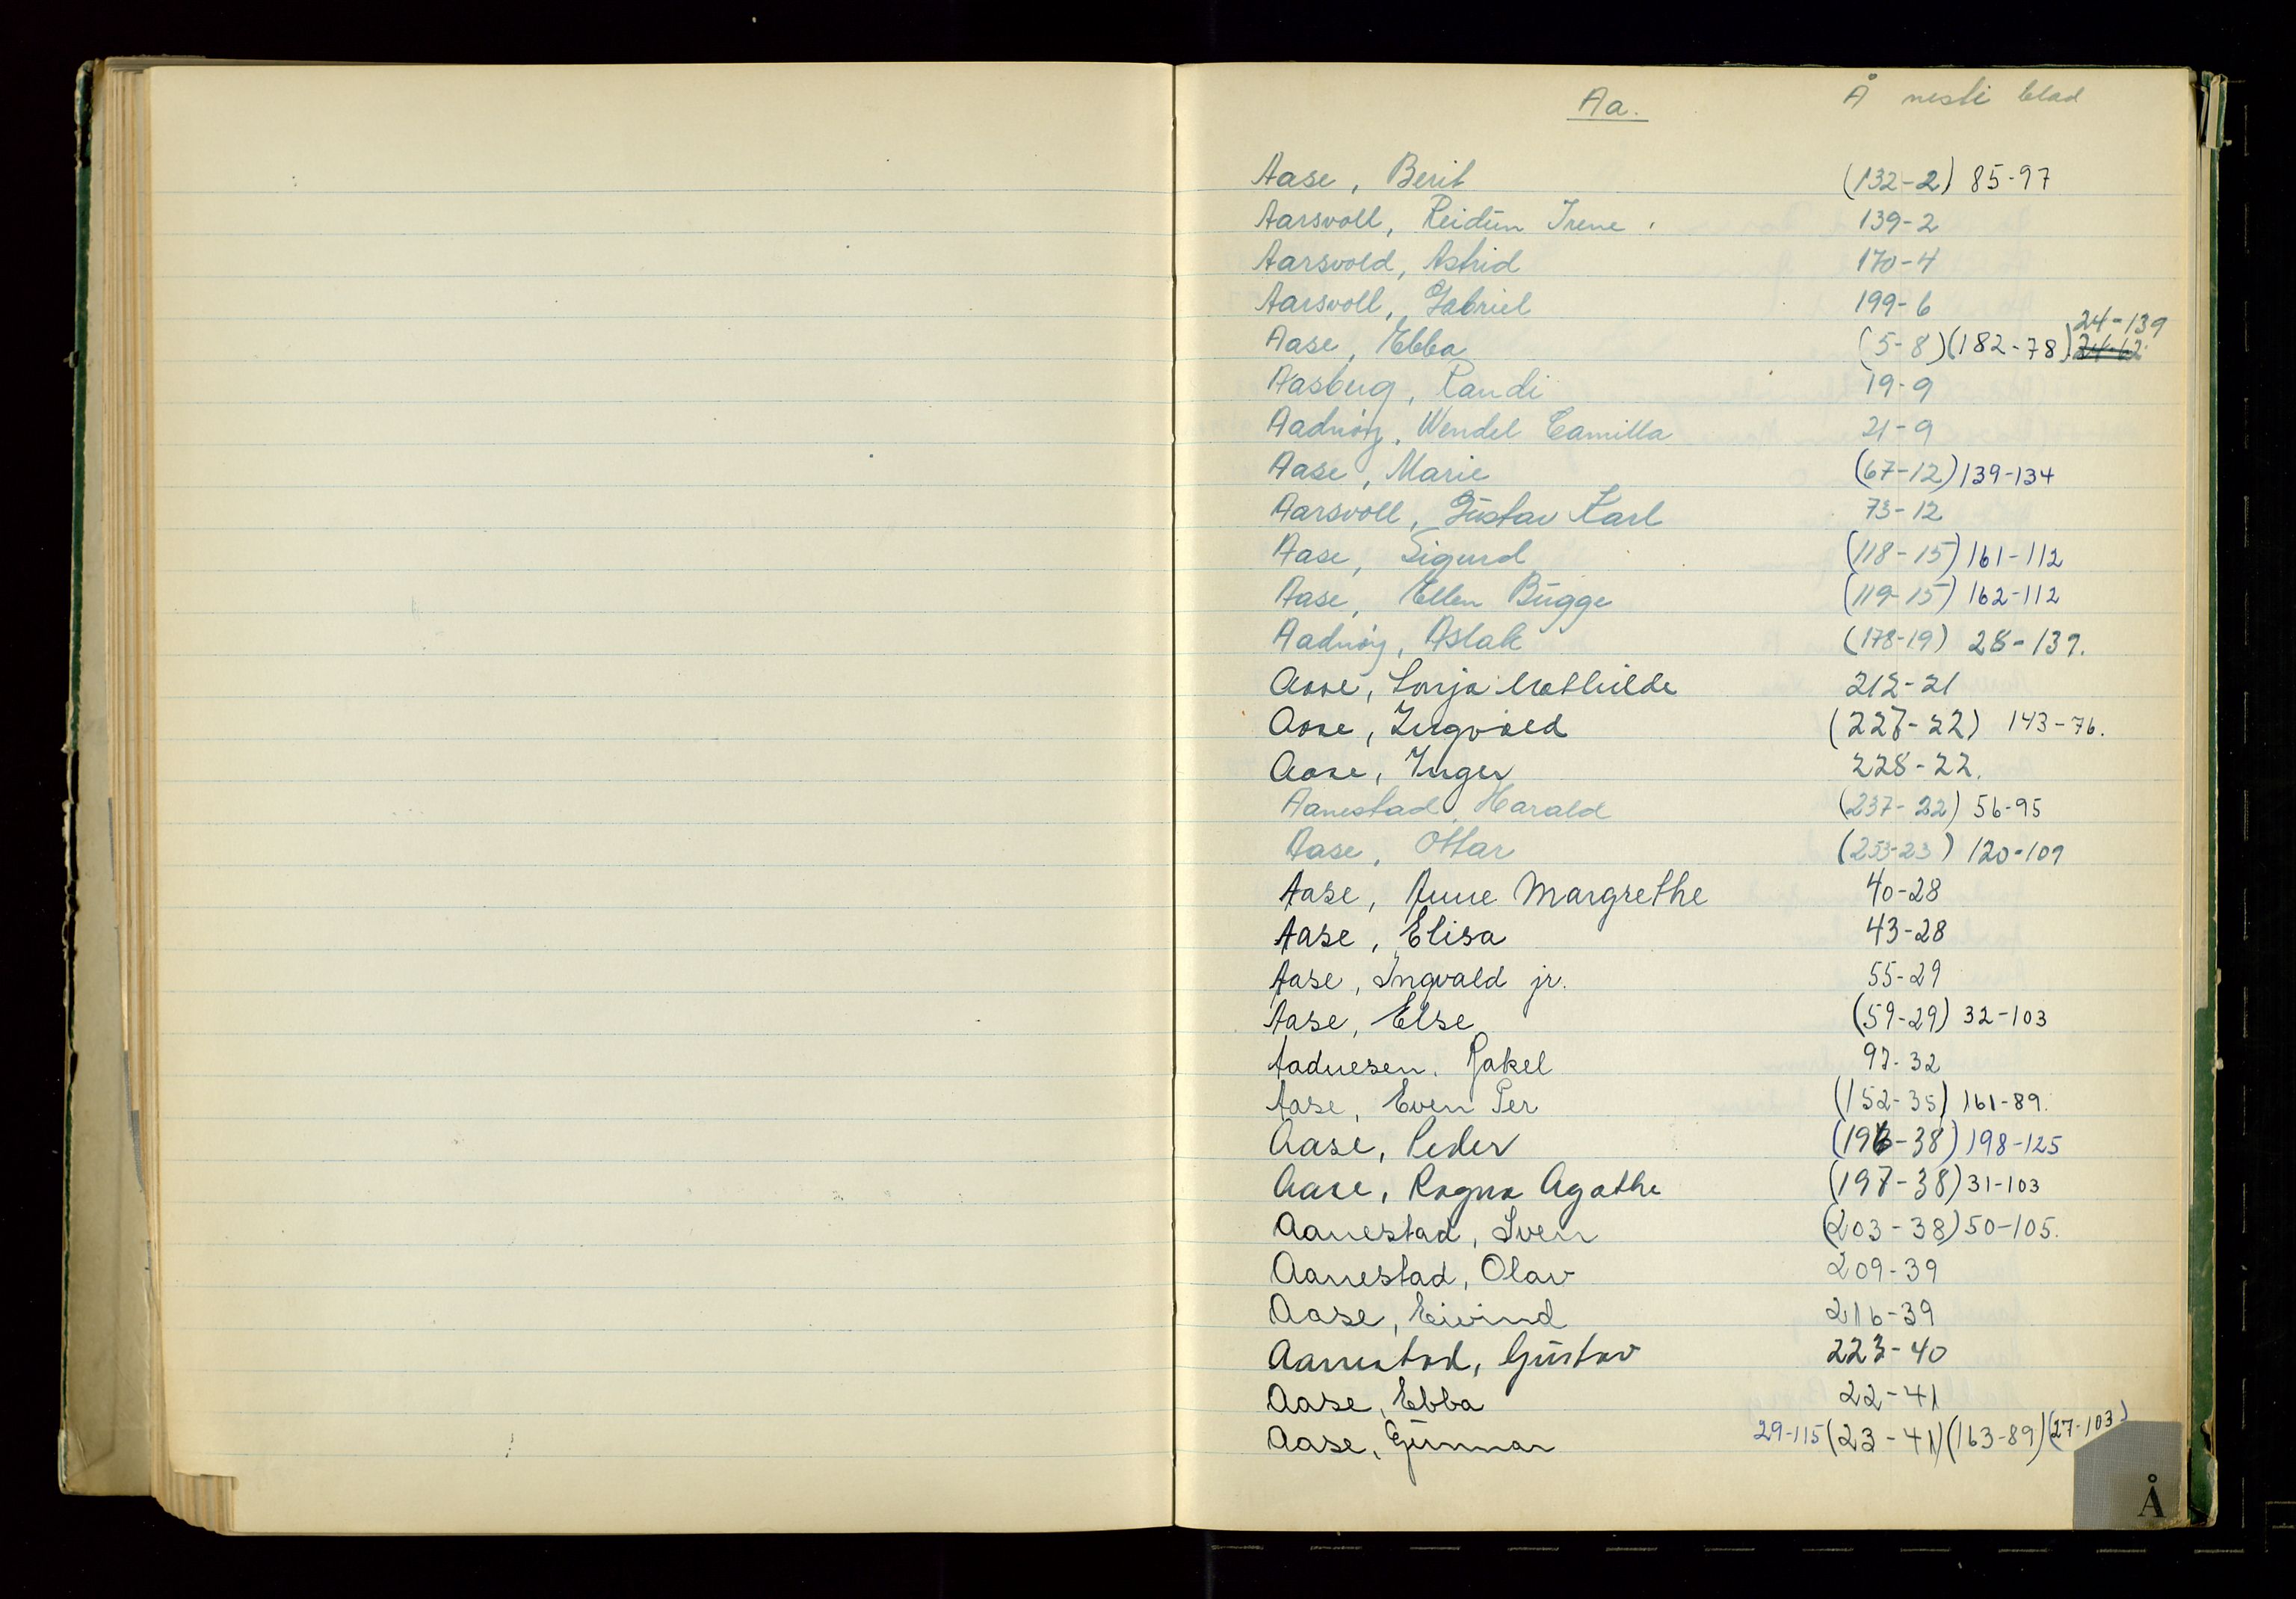 Aa. Å neste blad
Aase, Berit (132-2) 85-97
Aarsvoll, Reidun Irene. 139-2
Aarsvold, Astrid 170-4
Aarsvoll, Gabriel 199-6
24-139
Aase, Ebba (5-8)(182-78) 24-62
Aasberg, Randi 19-9
Aadnöy, Wendel Camilla 21-9
Aase, Marie (67-12) 139-134
Aarsvoll, Gustav Karl 73-12
Aase, Sigurd (118-15) 161-112
Aase, Ellen Bugge (119-15) 162-112
Aadnöy, Aslak (178-19) 28-139.
Aase, Sonja Mathilde 212-21
Aase, Ingvald (227-22) 143-76.
Aase, Inger 228-22.
Aanestad, Harald (237-22) 56-95
Aase, Ottar (253-23) 120-109
Aase, Anne Margrethe 40-28
Aase, Elisa 43-28
Aase, Ingvald jr. 55-29
Aase, Else (59-29) 32-103
Aadnesen, Rakel 97-32
Aase, Even Per (152-35) 161-89.
Aase, Peder (196-38) 198-125
Aase, Ragna Agathe (197-38) 31-103
Aanestad, Sven (203-38) 50-105.
Aanestad, Olav 209-39
Aase, Eivind 216-39
Aanestad, Gustav 223-40
Aase, Ebba 22-41
Aase, Gunnar 29-115 (23-41)(163-89)(27-103)
Å